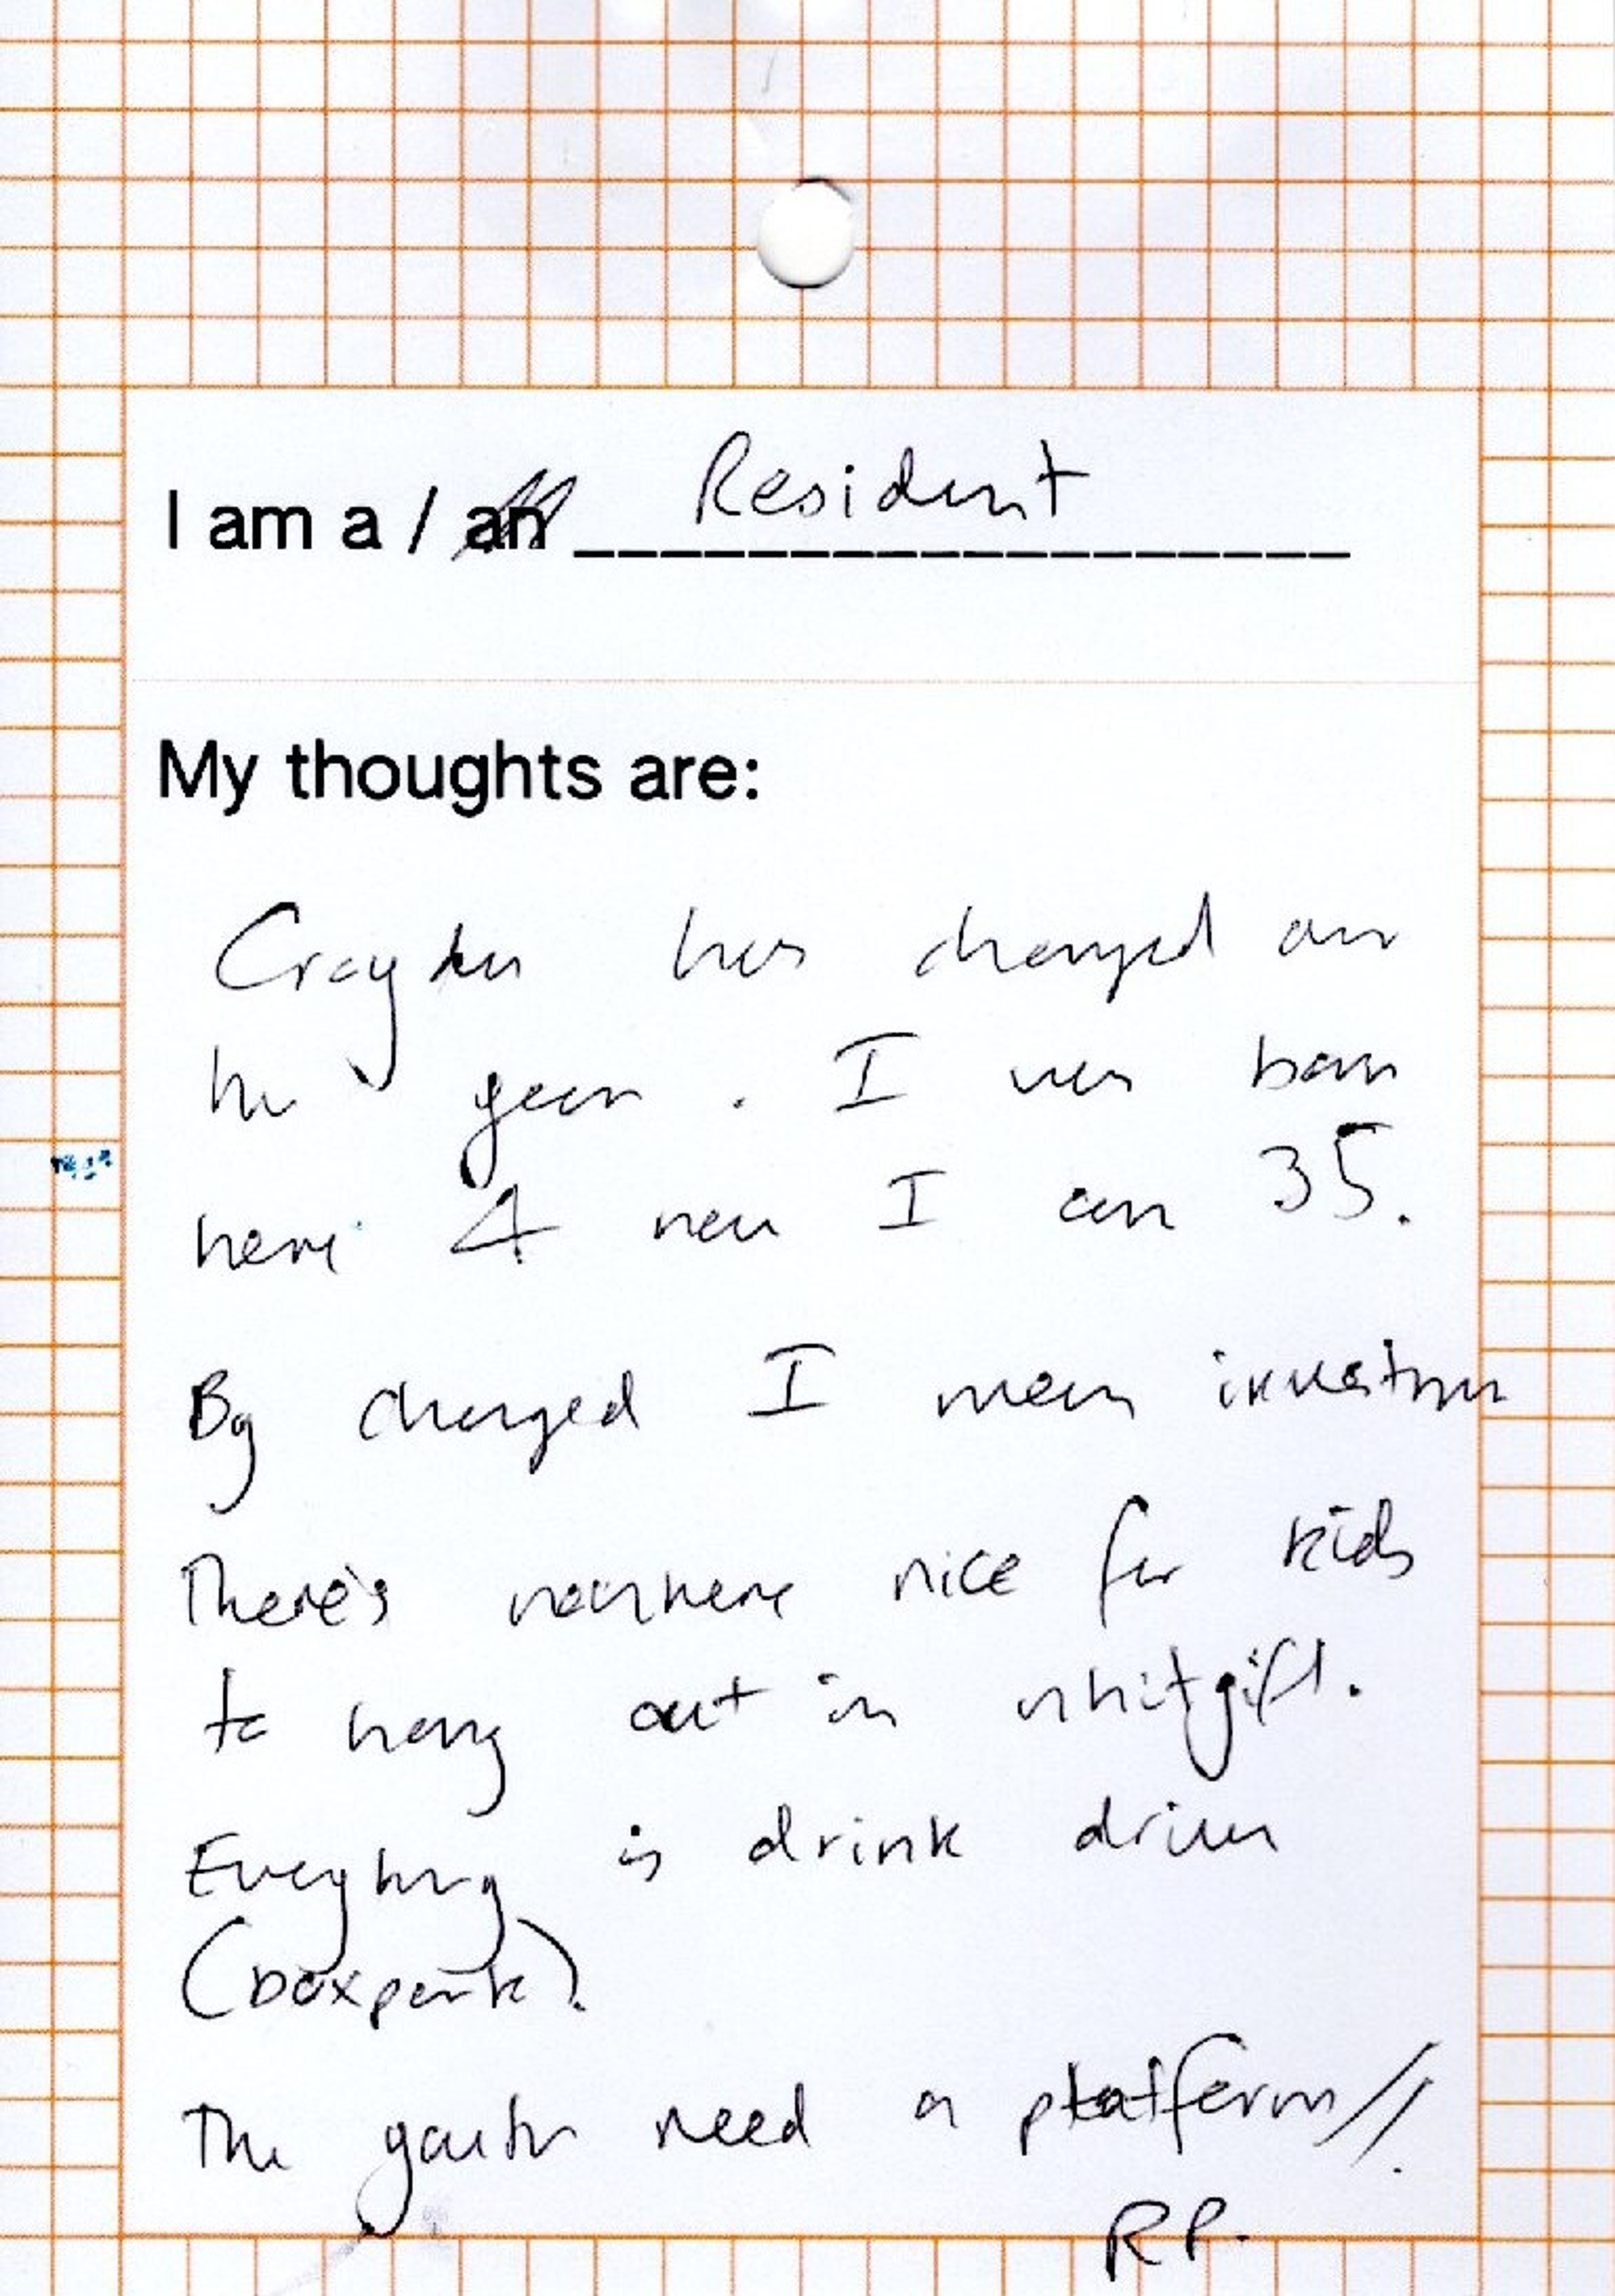 I am a / an Resident
My thoughts are:
Croydon has changed over
the years. I was born
here & now I am 35.
By changed I mean investment
There's nowhere nice for kids
to hang out in whitgift.
Everything is drink driven
(boxpark).
The youth need a platform//.
RP.